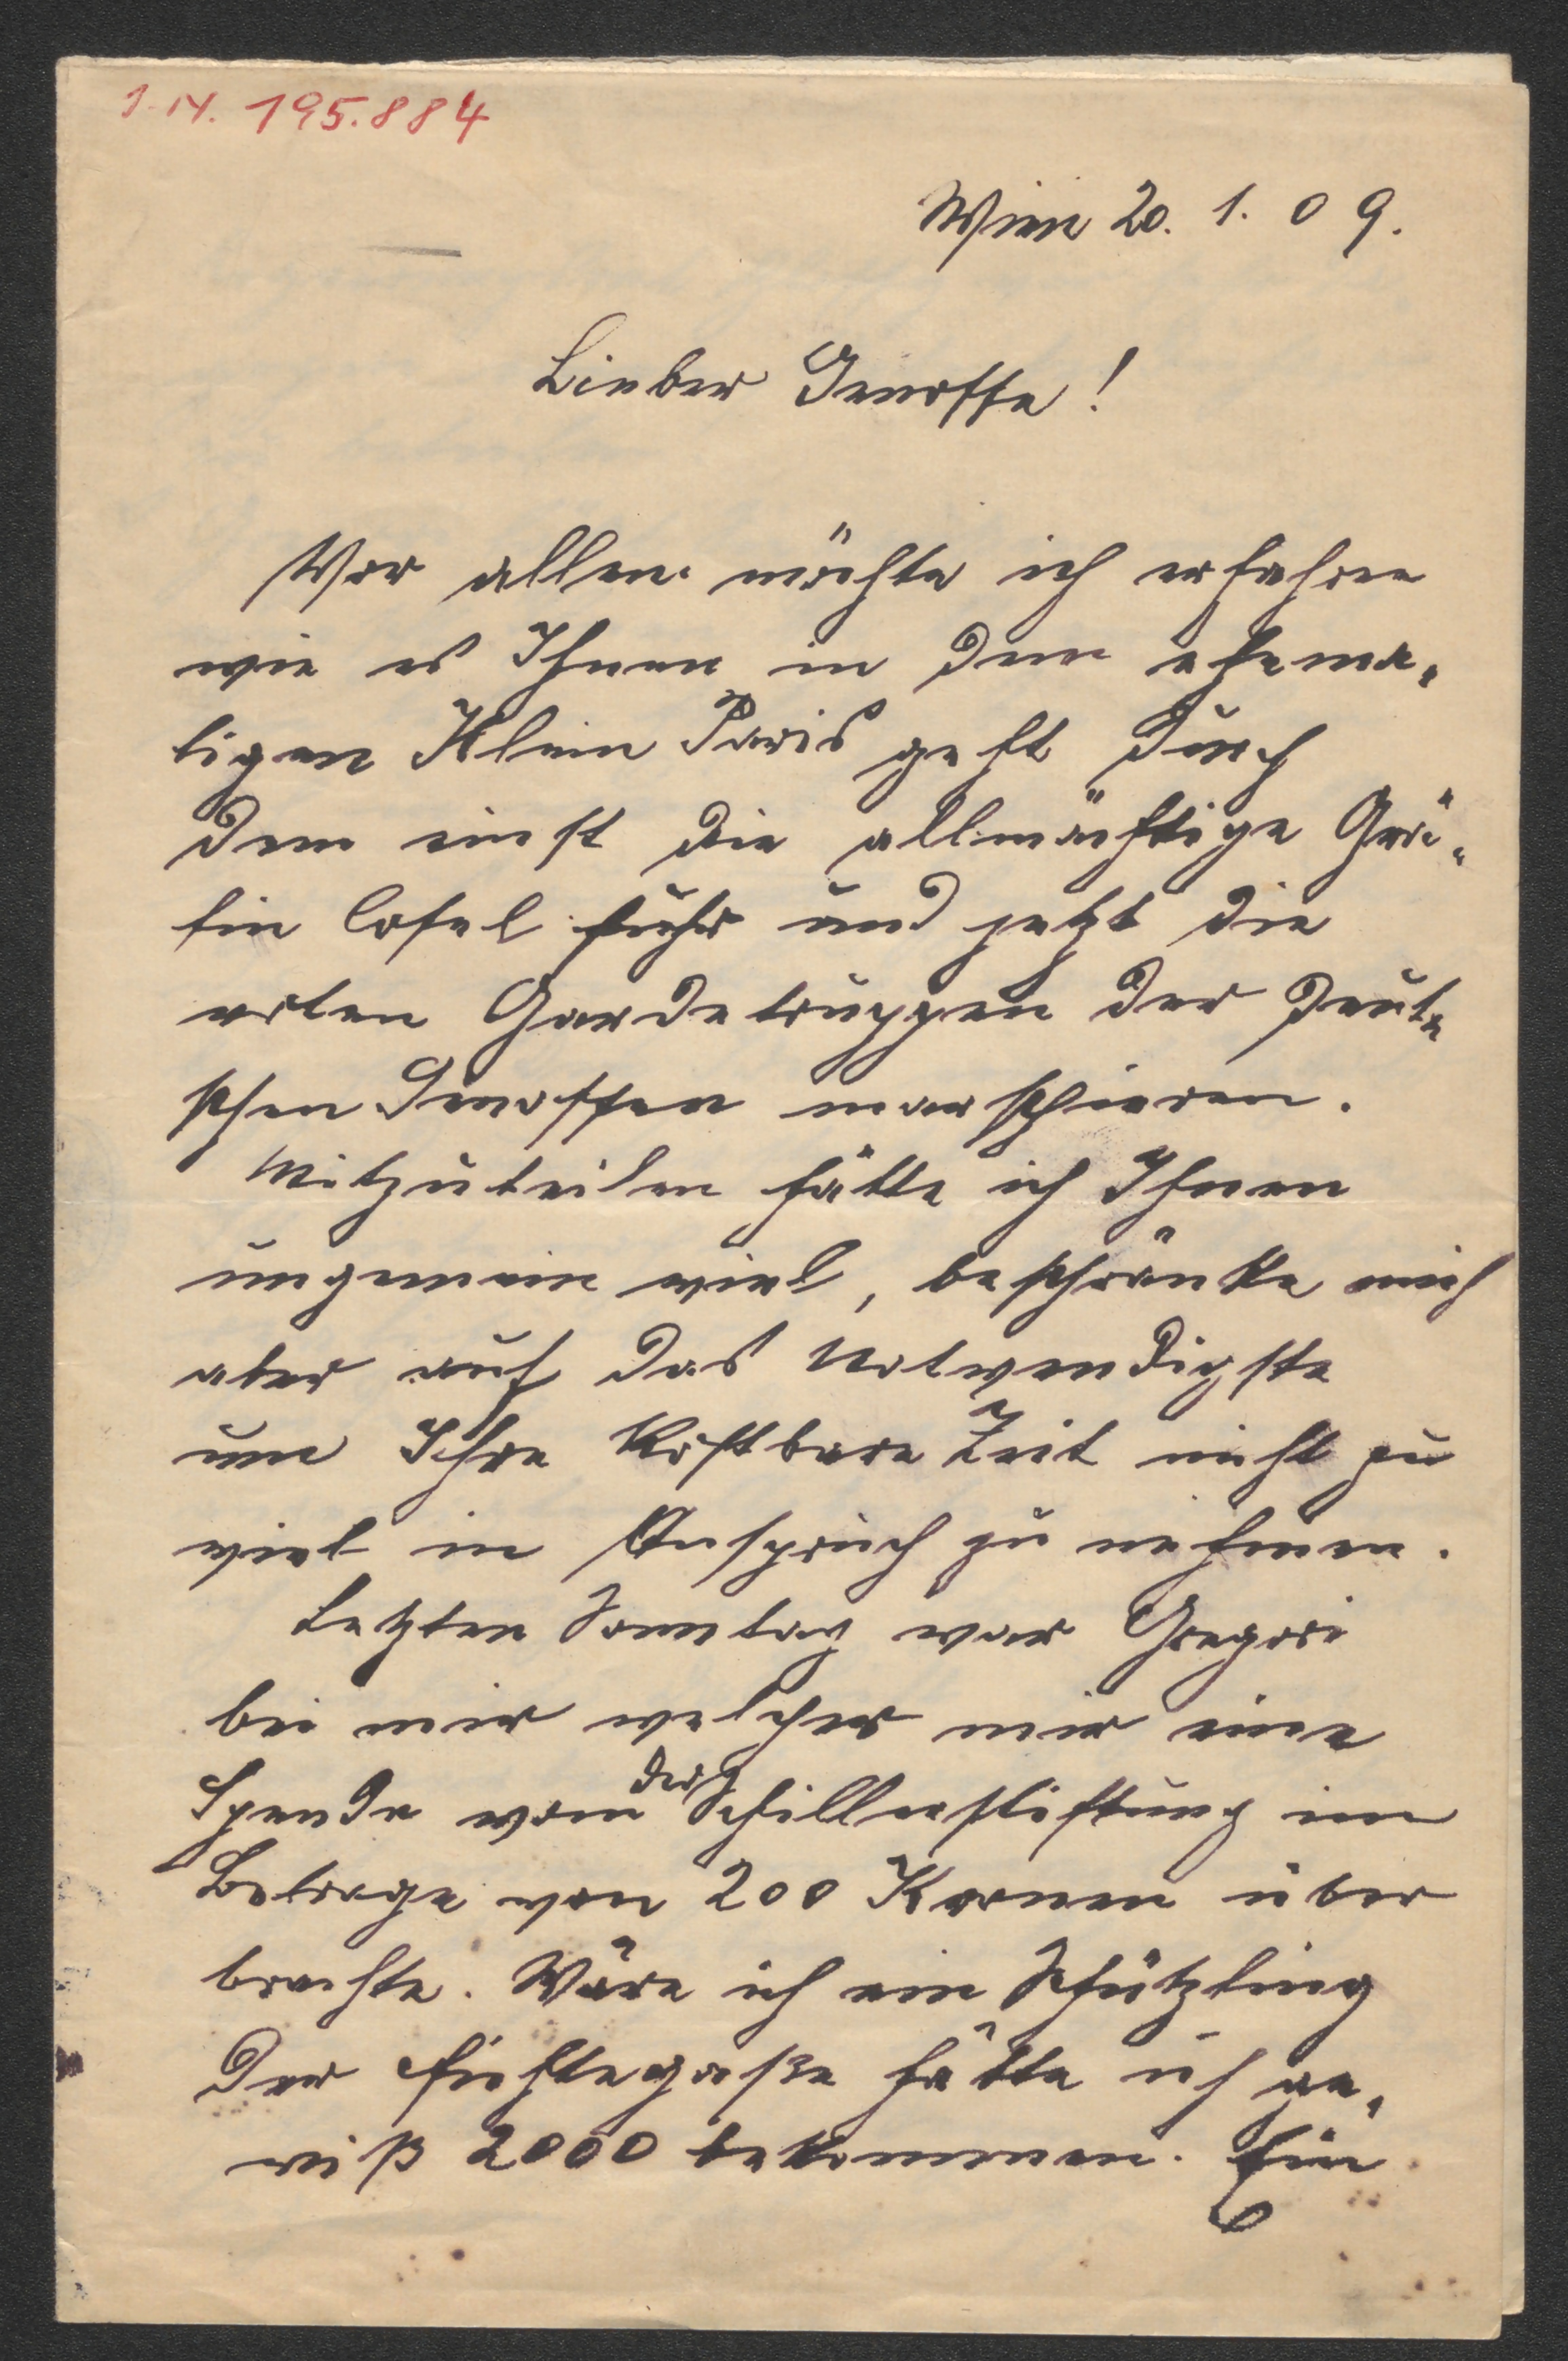 I.N. 195.884
Wien 20. 1. 09.
Lieber Genosse!
Vor allem möchte ich erfahren
wie es Ihnen in dem ehema-
ligen Klein Paris geht durch
dem einst die allmächtige Grä-
fin Cosel fuhr und jetzt die
roten Gardetruppen der Deut-
schen Genossen marschieren.
Mitzuteilen hätte ich Ihnen
ungemein viel, beschränke mich
aber auf das Notwendigste
um Ihre kostbare Zeit nicht zu
viel in Anspruch zu nehmen.
Letzten Sonntag war Gregori
bei mir welcher mir eine
Spende von der Schillerstiftung im
Betrage von 200 Kronen über
brachte. Wäre ich ein Schützling
der Fichtegaße hätte ich ge-
wiß 2000 bekommen. Ein